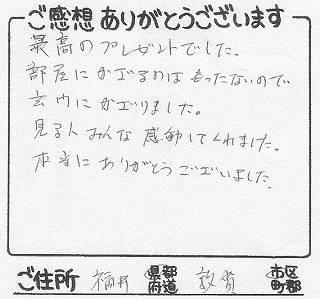 ご感想ありがとうございます
最高のプレゼントでした。
部屋にかざるのはもったないので
玄関にかざりました。
見る人みんな感動してくれました。
本当にありがとうございました。
ご住所 福井 都道府県 敦賀 市区町郡